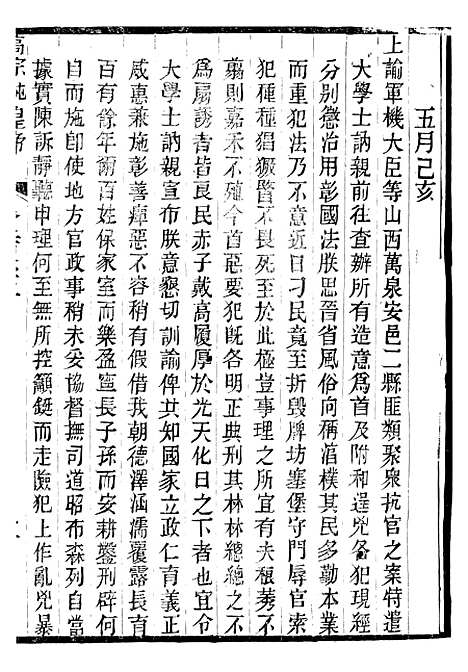 五月己亥
上諭軍機大臣等山西萬泉安邑二縣匪類聚衆抗官之案特遣
大學士訥親前往查辦所有造意爲首及附和逞兇各犯現經
分别懲治用彰國法朕思晉省風俗人稱湻樸其民多勤本業
而重犯法乃不意近日刁民竟至折毁牌坊塞堡守門辱官索
犯種種猖獗暋不畏死至於此極豈事理之所宜有夫稂莠不
翦則嘉禾不殖今首惡要犯旣各明正典刑其林林總總之不
爲屬誘者皆良民赤子戴高履厚於光天化日之下者也特令
大學士訥親宣布朕意懇切訓諭俾共知國家立政仁育義正
威惠兼施彰善癉惡不容稍有假借我朝德澤涵濡覆露長育
百有餘年爾百姓保家室而樂盈寧長子孫而安耕鑿刑辟何
自而施卽使地方官政事稍未妥協督撫司道昭布森列自當
據實陳訴靜聽申理何至無所控籲鋌而走險犯上作亂兇暴
高宗純皇帝